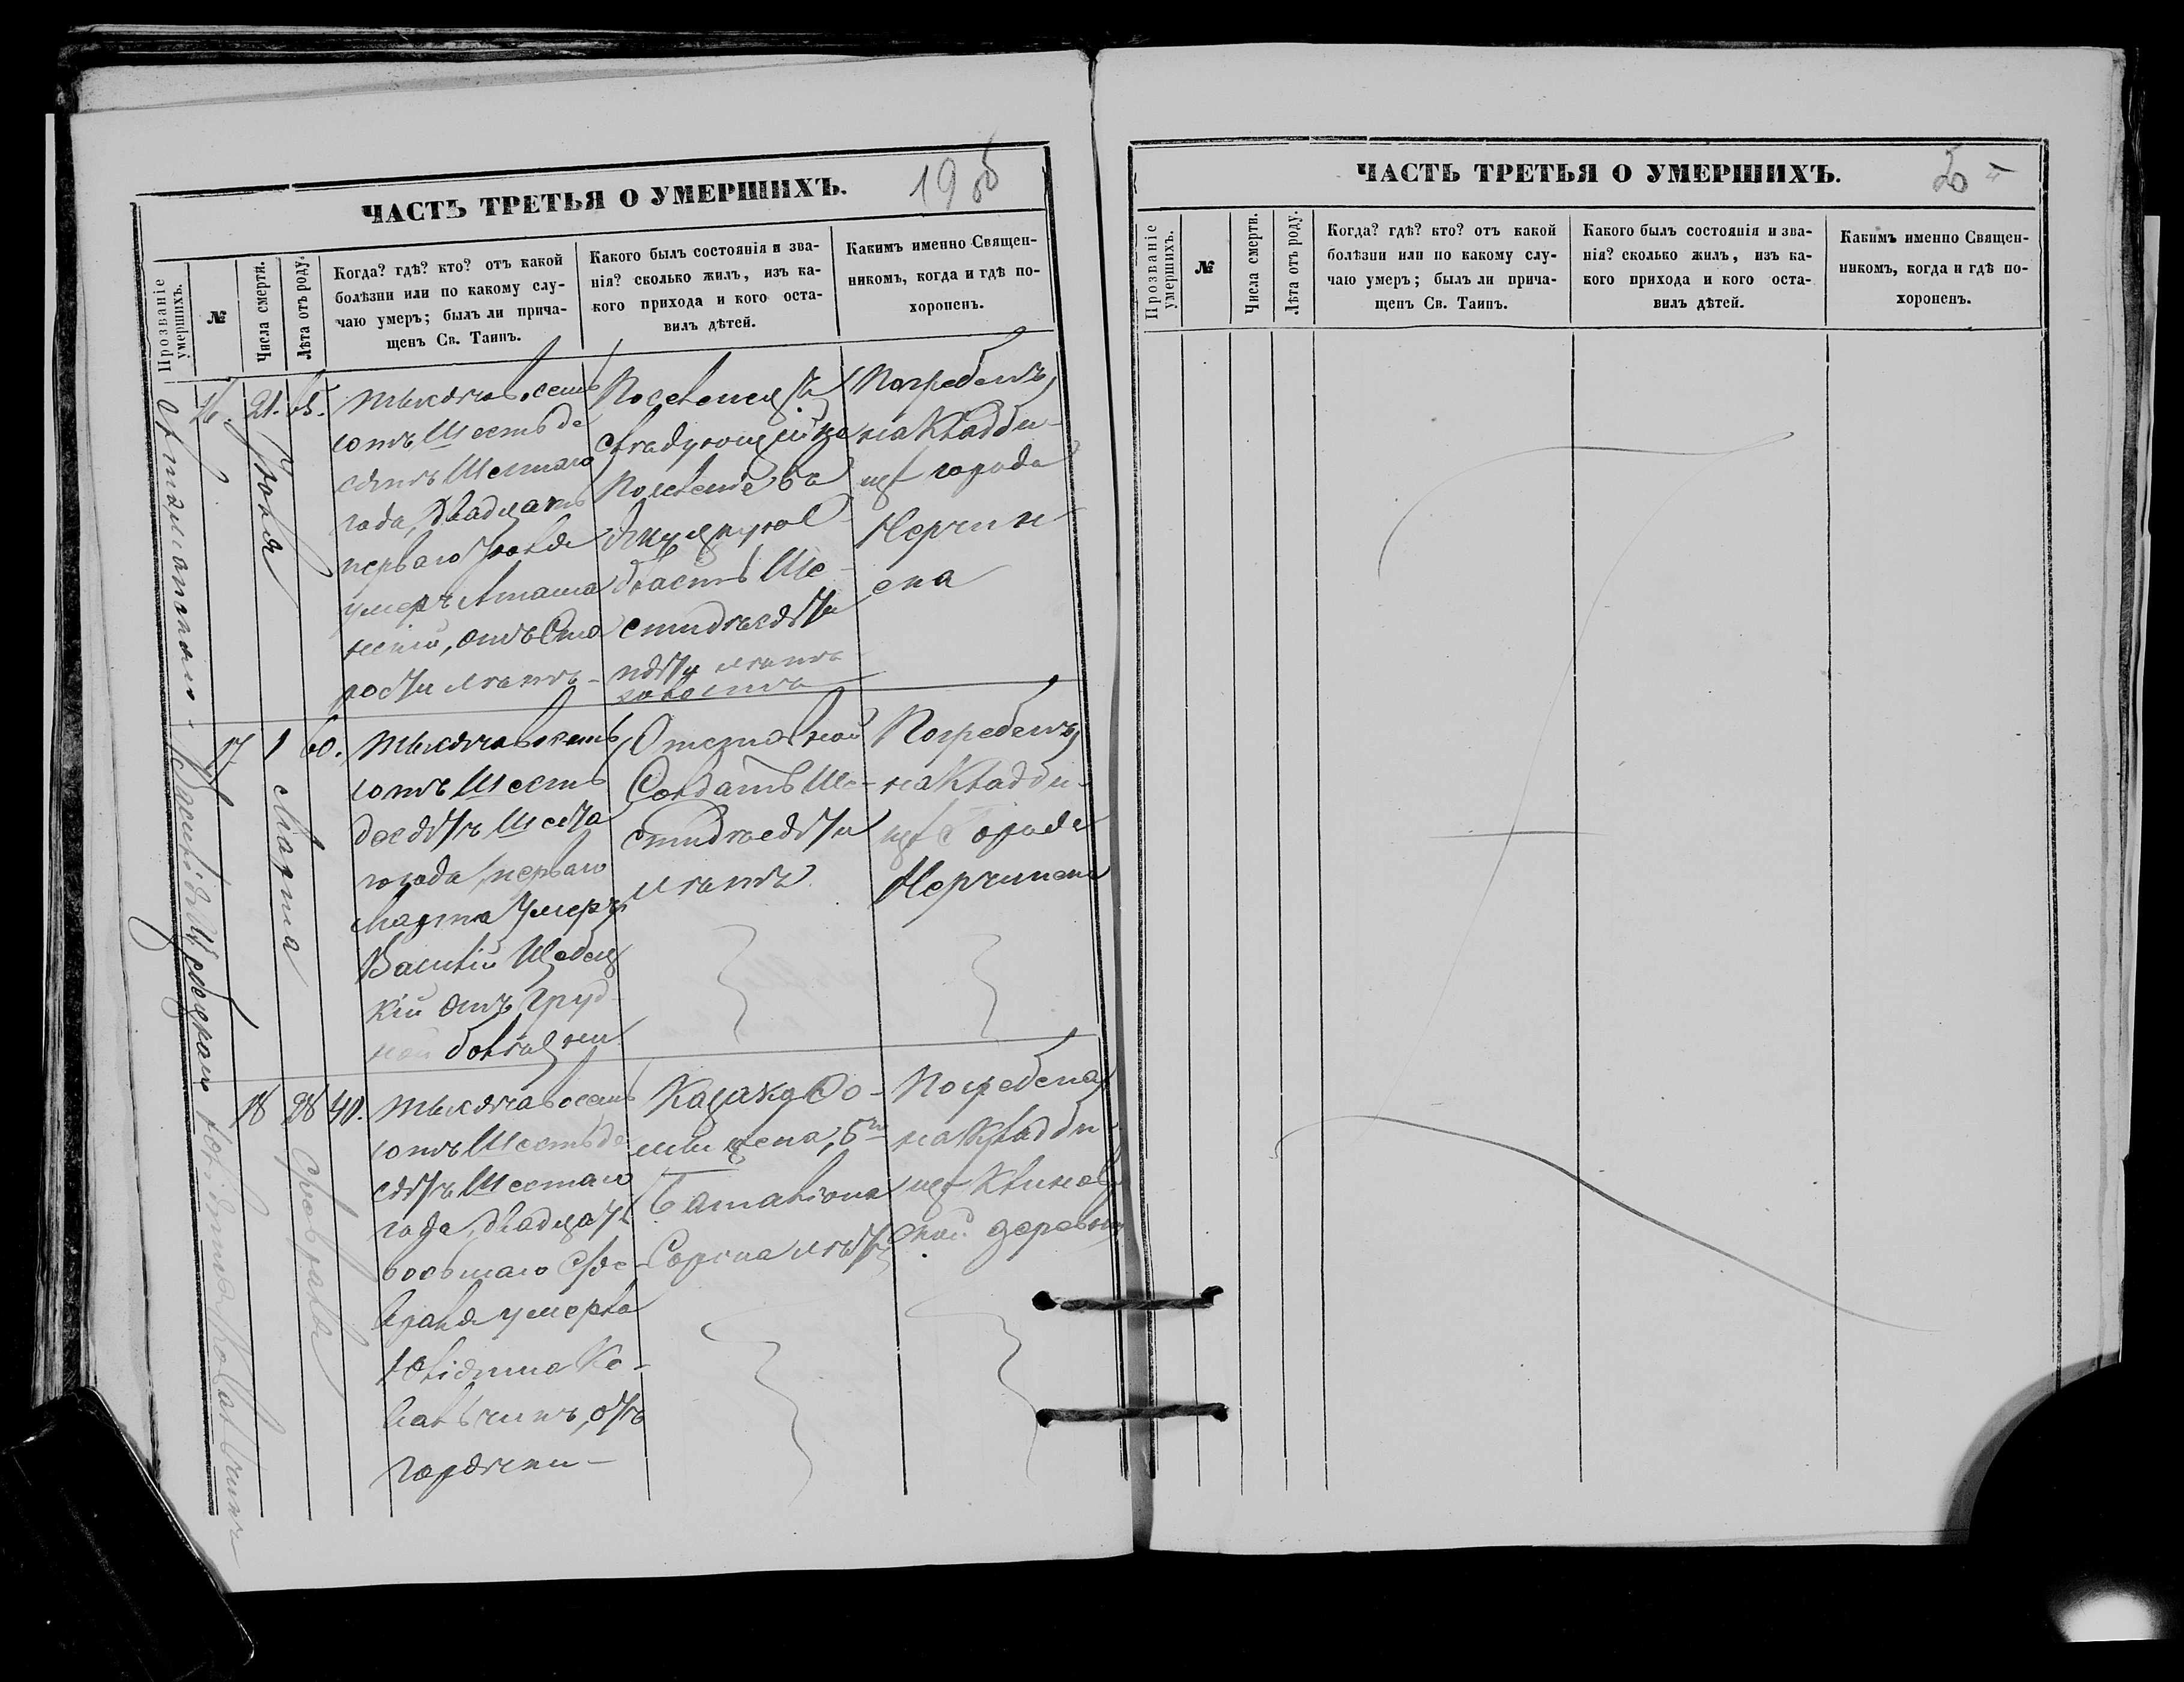 ЧАСТЬ ТРЕТЬЯ О УМЕРШИХЪ.
19 об
Прозваніе умершихъ.
№
Числа смерти.
Лѣта отъ роду.
Когда? гдѣ? кто? отъ какой
болѣзни или по какому слу-
чаю умеръ; былъ ли прича-
щенъ Св. Таинъ.
Какого былъ состоянія и зва-
нія? сколько жилъ, изъ ка-
кого прихода и кого оста-
вилъ дѣтей.
Какимъ именно Священ-
никомъ, когда и гдѣ по-
хороненъ.
16.
21. Іюня
65.
Тысяча восемь
сотъ Шесть де
сятъ Шестаго
года, двадцать
перваго Іюня
умеръ
отъ Ста
рости лѣтъ
Поселенецъ
слѣдующій на
Поселеніе въ
Ше-
стидесяти
пяти лѣтъ
холостъ
Погребенъ
на кладби-
щѣ города
Нерчин
ска
17
1 Марта
60.
Тысяча восемь
сотъ Шесть
десятъ Шеста
го года, перваго
Марта Умеръ
Василій
кій отъ Груд
ной болѣзни
Отставной
Солдатъ Ше-
стидесяти
лѣтъ
Погребенъ
на кладби-
щѣ Города
Нерчинска
18
28 Февраля
40.
Тысяча восемь
сотъ Шесть де
сятъ Шестаго
года, двадцать
восьмаго Фев-
враля умерла
отъ
горячки
Казака
жена, 5го
Баталіона
Сорока лѣтъ
Погребена
на кладби
щѣ
ской деревни
ЧАСТЬ ТРЕТЬЯ О УМЕРШИХЪ.
20
Прозваніе умершихъ.
№
Числа смерти.
Лѣта отъ роду.
Когда? гдѣ? кто? отъ какой
болѣзни или по какому слу-
чаю умеръ; былъ ли прича-
щенъ Св. Таинъ.
Какого былъ состоянія и зва-
нія? сколько жилъ, изъ ка-
кого прихода и кого оста-
вилъ дѣтей.
Какимъ именно Священ-
никомъ, когда и гдѣ по-
хороненъ.